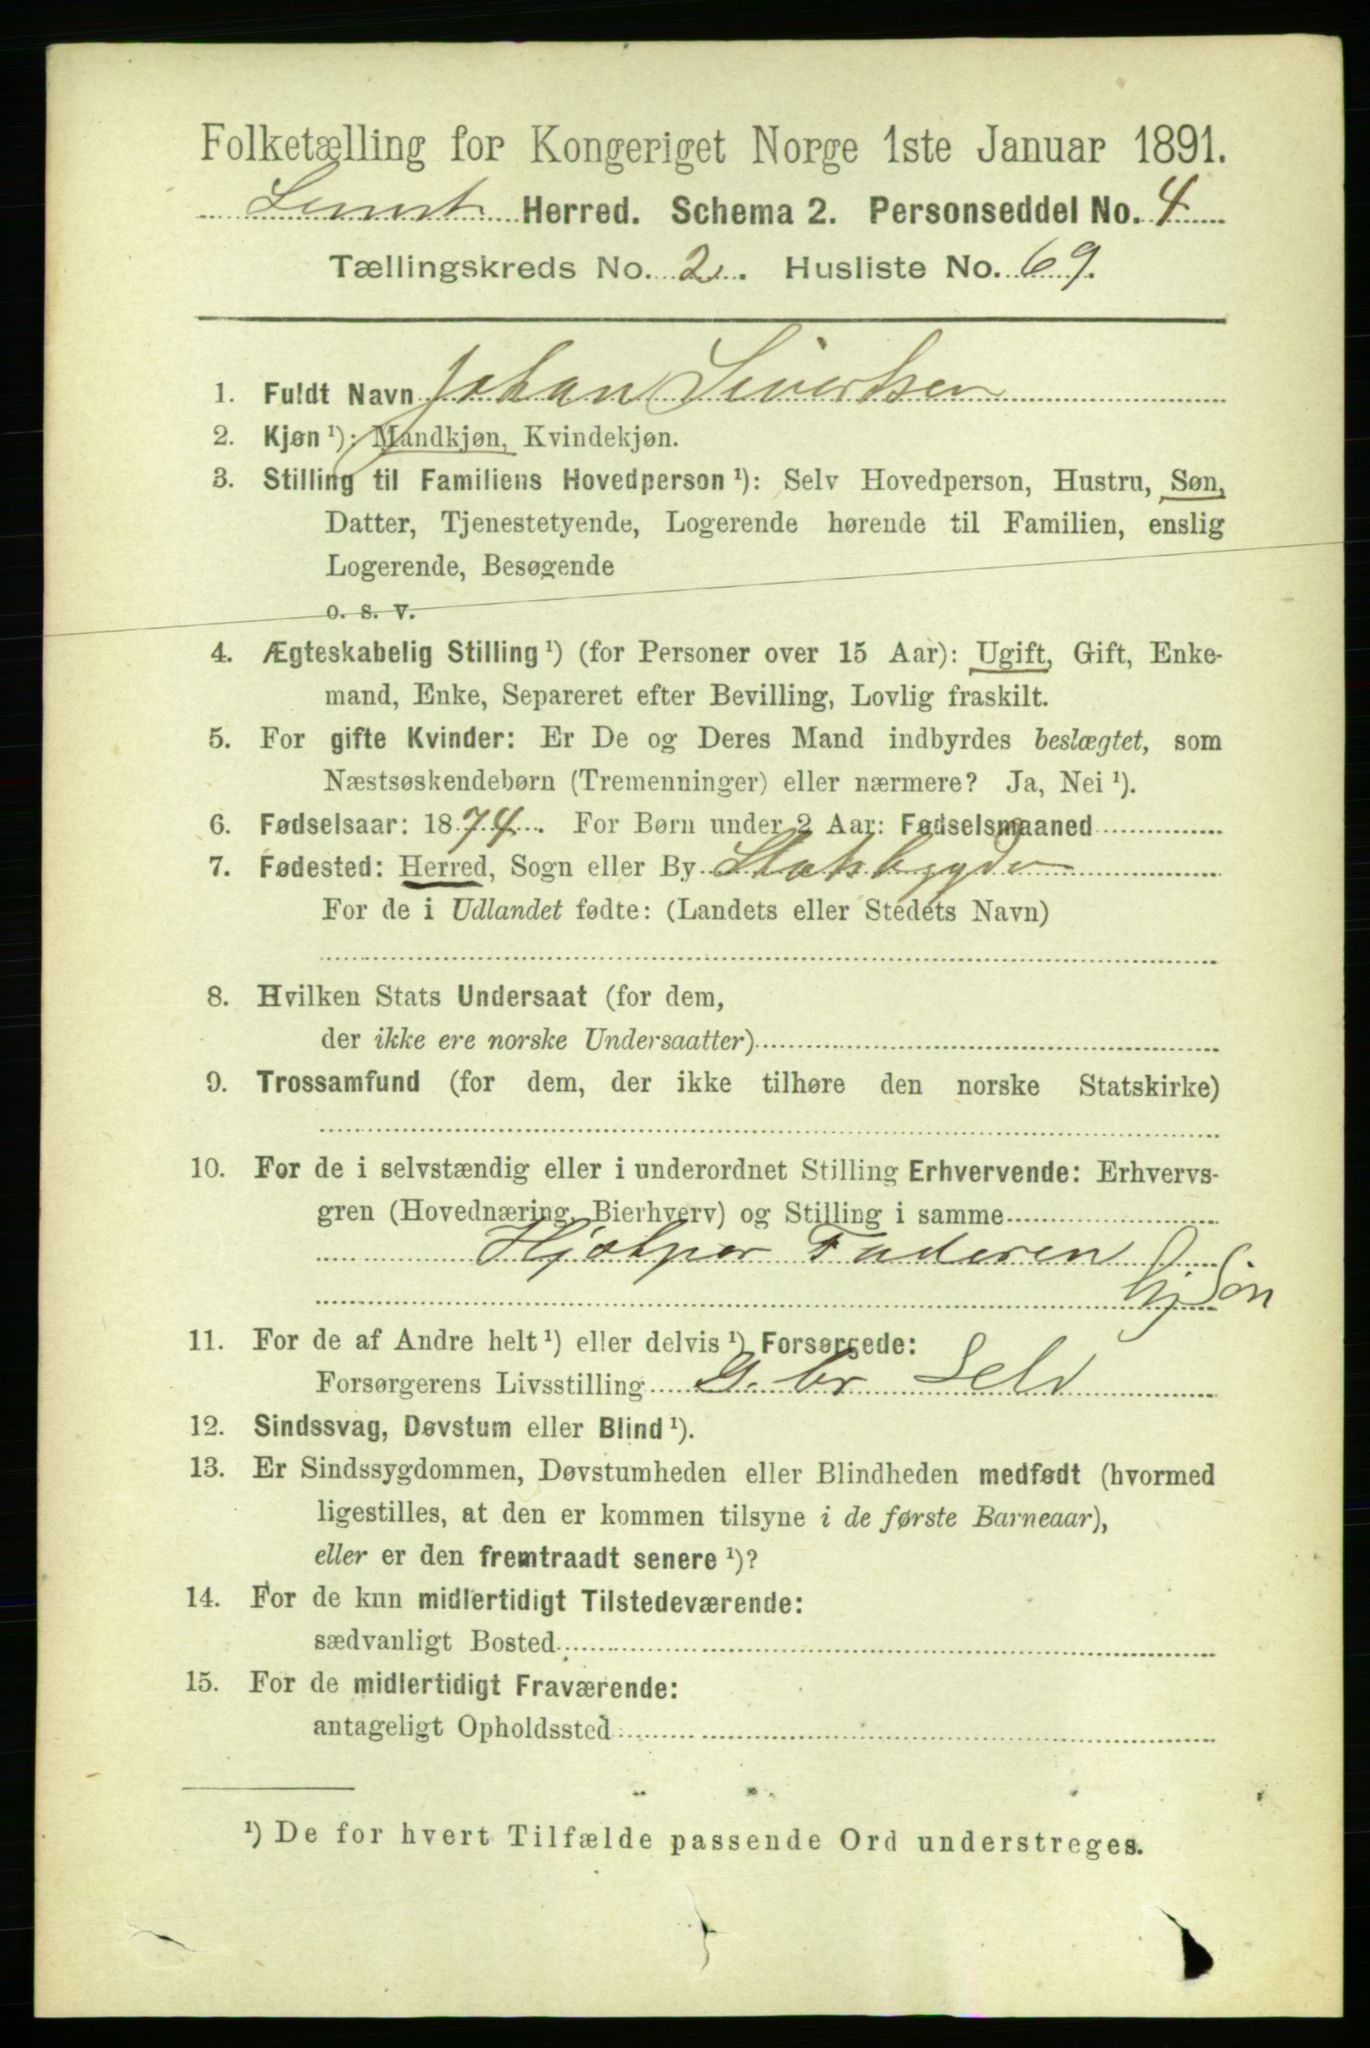 Folketælling for Kongeriget Norge 1ste Januar 1891.
Herred. Schema 2. Personseddel No. 4
Tællingskreds No. 2. Husliste No. 69.
1. Fuldt Navn Johan Sivertsen
2. Kjøn ¹): Mandkjøn, Kvindekjøn.
3. Stilling til Familiens Hovedperson ¹): Selv Hovedperson, Hustru, Søn,
Datter, Tjenestetyende, Logerende hørende til Familien, enslig
Logerende, Besøgende
o. s. v.
4. Ægteskabelig Stilling ¹) (for Personer over 15 Aar): Ugift, Gift, Enke-
mand, Enke, Separeret efter Bevilling, Lovlig fraskilt.
5. For gifte Kvinder: Er De og Deres Mand indbyrdes beslægtet, som
Næstsøskendebørn (Tremenninger) eller nærmere? Ja, Nei ¹).
6. Fødselsaar: 1874. For Børn under 2 Aar: Fødselsmaaned
7. Fødested: Herred, Sogn eller By Stadsbygden
For de i Udlandet fødte: (Landets eller Stedets Navn)
8. Hvilken Stats Undersaat (for dem,
der ikke ere norske Undersaatter)
9. Trossamfund (for dem, der ikke tilhøre den norske Statskirke)
10. For de i selvstændig eller i underordnet Stilling Erhvervende: Erhvervs-
gren (Hovednæring, Bierhverv) og Stilling i samme
Hjælper Faderen
Søn
11. For de af Andre helt ¹) eller delvis ¹) Forsørgede:
Forsørgerens Livsstilling G. br Selv
12. Sindssvag, Døvstum eller Blind ¹).
13. Er Sindssygdommen, Døvstumheden eller Blindheden medfødt (hvormed
ligestilles, at den er kommen tilsyne i de første Barneaar),
eller er den fremtraadt senere ¹)?
14. For de kun midlertidigt Tilstedeværende:
sædvanligt Bosted
15. For de midlertidigt Fraværende:
antageligt Opholdssted
¹) De for hvert Tilfælde passende Ord understreges.